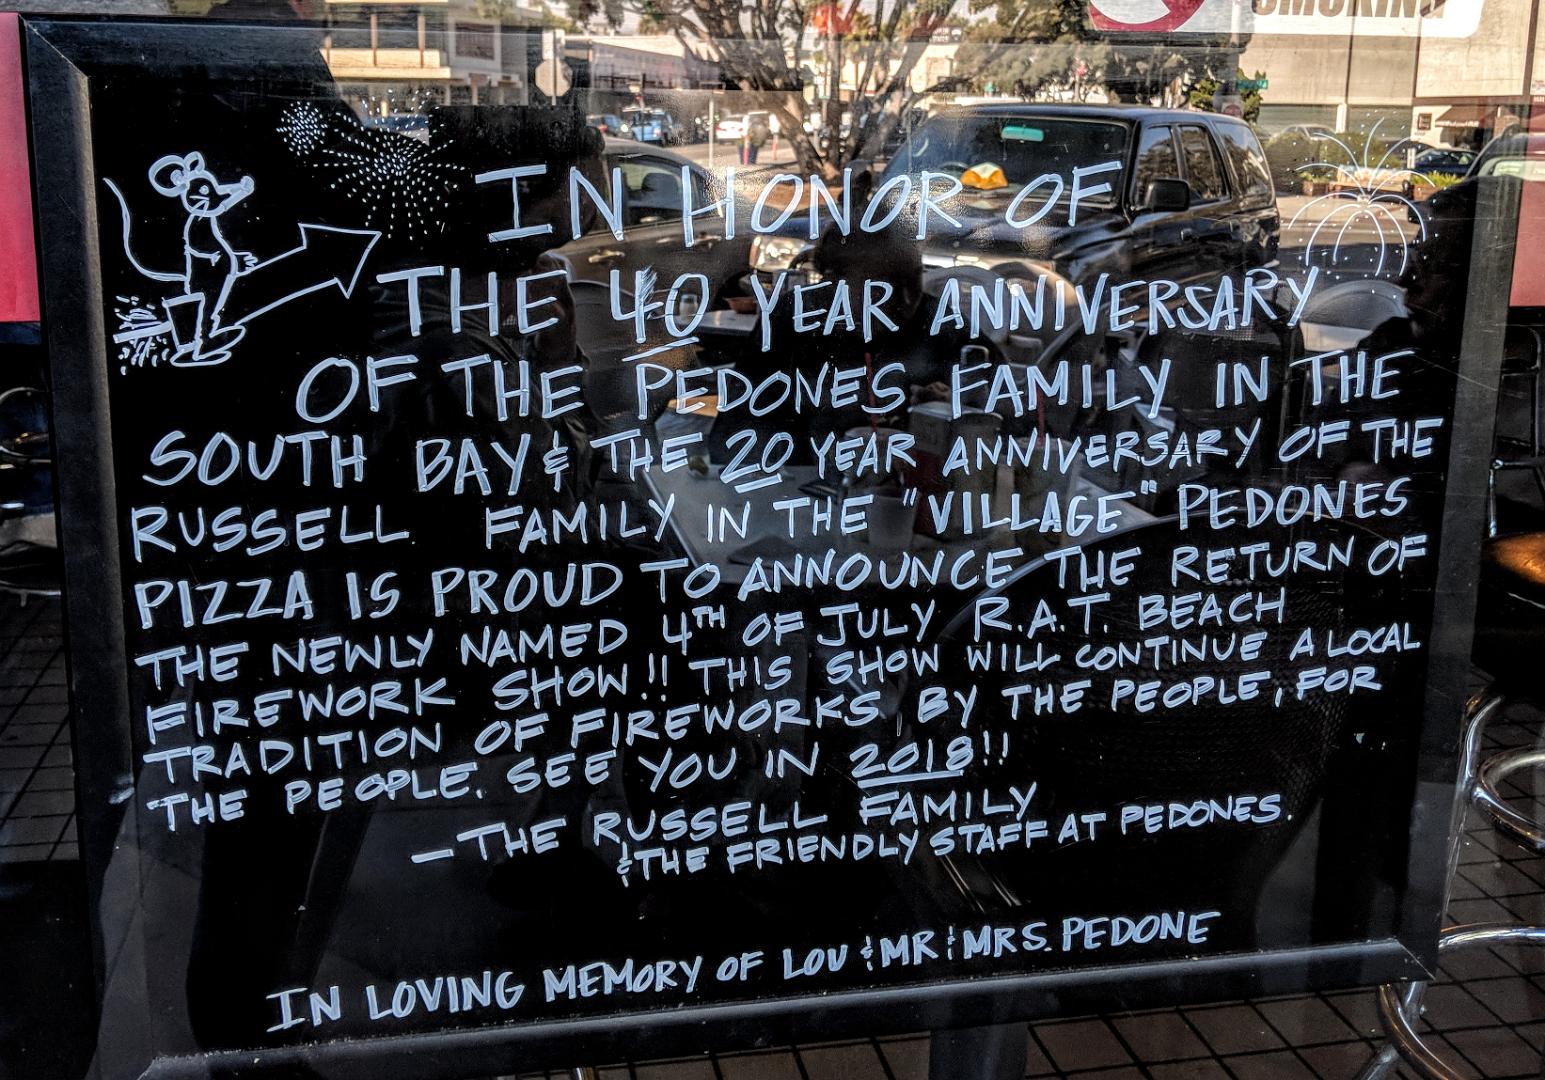 IN HONOR OF
THE 40 YEAR ANNIVERSARY
OF THE PEDONES FAMILY IN THE
SOUTH BAY & THE 20 YEAR ANNIVERSARY OF THE
RUSSELL FAMILY IN THE "VILLAGE" PEDONES
PIZZA IS PROUD TO ANNOUNCE THE RETURN OF
THE NEWLY NAMED 4TH OF JULY R.A.T. BEACH
FIREWORK SHOW!! THIS SHOW WILL CONTINUE A LOCAL
TRADITION OF FIREWORKS BY THE PEOPLE, FOR
THE PEOPLE. SEE YOU IN 2018!!
— THE RUSSELL FAMILY
& THE FRIENDLY STAFF AT PEDONES.
IN LOVING MEMORY OF LOU & MR & MRS. PEDONE